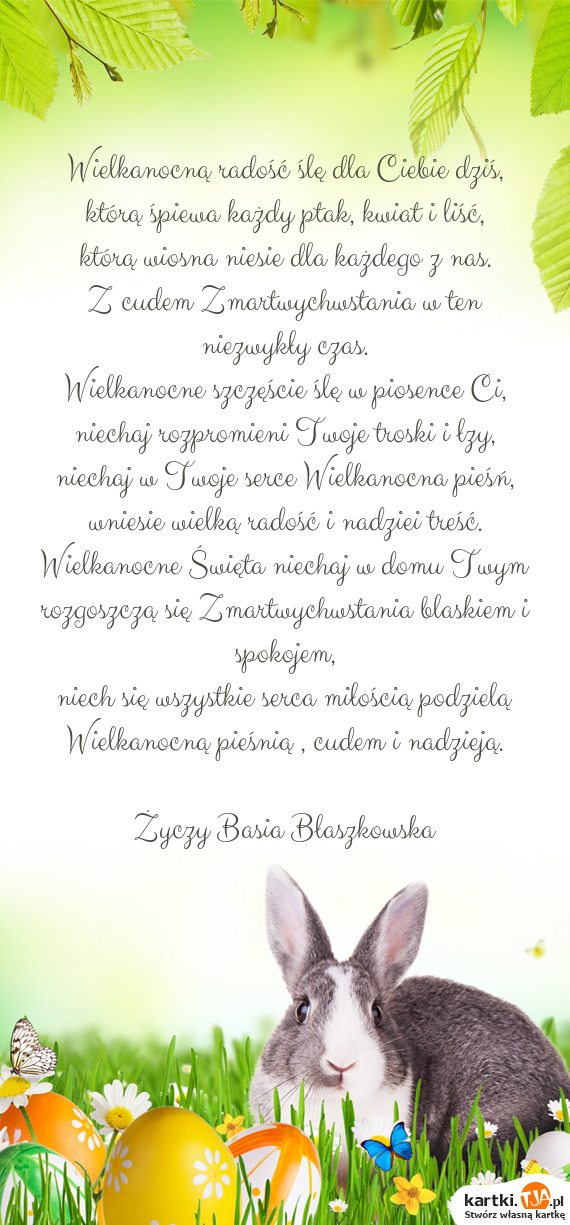 Wielkanocną radość ślę dla Ciebie dziś,
którą śpiewa każdy ptak, kwiat i liść,
którą wiosna niesie dla każdego z nas.
Z cudem Zmartwychwstania w ten
niezwykły czas.
Wielkanocne szczęście ślę w piosence Ci,
niechaj rozpromieni Twoje troski i łzy,
niechaj w Twoje serce Wielkanocna pieśń,
wniesie wielką radość i nadziei treść.
Wielkanocne Święta niechaj w domu Twym
rozgoszczą się Zmartwychwstania blaskiem i
spokojem,
niech się wszystkie serca miłością podzielą
Wielkanocną pieśnią , cudem i nadzieją.
Życzy Basia Błaszkowska
kartki.TJA.pl
Stwórz własną kartkę